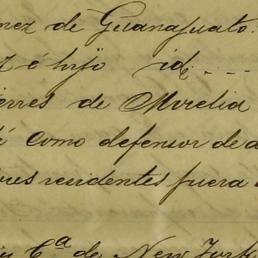 nez de Guanajuato.
z é hijo id. - - - -
ierres de Morelia
í como defensor de a
ores residentes fuera
Cª de New York